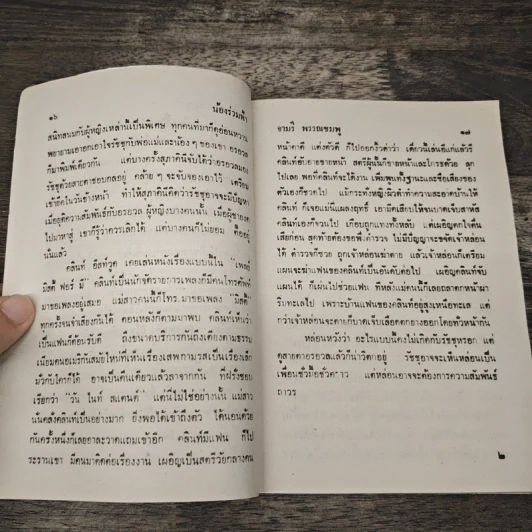 ๑๖ น้องร่วมฟ้า
สนิทสนมกับผู้หญิงเหล่านี้เป็นพิเศษ ทุกคนที่มาก็ดูอ่อนหวาน
พยายามเอาอกเอาใจรัชชุกับพ่อแม่และน้อง ๆ ของเขา อรอวล
ก็มาพิมพ์เดียวกัน แต่บางครั้งสุภาคินีจับได้ว่าอรอวลมอง
รัชชุด้วยสายตาชอบกลอยู่ คล้าย ๆ จะจับจองเอาไว้ เตรียม
เข้าฮึดในวันข้างหน้า ทำให้สุภาคินีคิดว่ารัชชุอาจจะมีปัญหา
เมื่อยุติความสัมพันธ์กับอรอวล ผู้หญิงบางคนนั้น เมื่อผู้ชายคบ
ไปมาหาสู่ เขาก็รู้ว่าควรเลิกได้ แต่บางคนก็ไม่ยอม ดื้ออยู่
นั่นแล้ว
คลินท์ อีสท์วูด เคยเล่นหนังเรื่องแบบนี้ใน "เพลย์
มิสตี้ ฟอร์ มี" คลินท์เป็นนักจัดรายการเพลงก็มีคนโทรศัพท์
มาขอเพลงอยู่เสมอ แม่สาวคนนี้ก็โทร.มาขอเพลง "มิสตี้"
ทุกครั้งจนจำเสียงกันได้ ตอนหลังก็ตามมาพบ คลินท์เห็นว่า
เป็นแฟนก็ต้อนรับดี ถึงขนาดบริการกันถึงเตียงตามธรรม
เนียมคนอเมริกันสมัยใหม่ที่เห็นเรื่องเสพกามรสเป็นเรื่องเล็ก
มั่วกับใครก็ได้ อาจเป็นคืนเดียวแล้วลาจากกัน ที่ฝรั่งชอบ
เรียกว่า "วัน ไนท์ สแตนด์" แต่นี่ไม่ใช่อย่างนั้น แม่สาว
นั่นคลั่งคลินท์เป็นอย่างมาก ยิ่งพอได้เข้าถึงตัว ได้นอนด้วย
กันครั้งหนึ่งก็เลยอาละวาดแถมเข้าอีก คลินท์มีแฟน ก็ไป
ระรานเขา มีคนมาติดต่อเรื่องงาน เผอิญเป็นสตรีวัยกลางคน
จามรี พรรณชมพู ๑๗
หน้าตาดี แต่งตัวดี ก็ไปออกงิ้วด่าว่า เดี๋ยวนี้เล่นอีแก่แล้วรึ
คลินท์อับอายขายหน้า สตรีผู้นั้นก็ขายหน้าและโกรธด้วย ลุก
ไปเลย พอที่คลินท์จะได้งาน เพิ่มพูนทั้งฐานะและชื่อเสียงของ
ตัวเองก็ชวดไป แม้กระทั่งหญิงผิวดำทำความสะอาดบ้านให้
คลินท์ ก็เจอแม่นแผลงฤทธิ์ เอามีดเสียบให้จนบาดเจ็บสาหัส
คลินท์เองก็จวนไป เกือบถูกแทงทั้งหลับ แต่เผอิญตกใจตื่น
เสียก่อน สุดท้ายต้องขอพึ่งตำรวจ ไม่มีปัญญาจะขจัดเจ้าหล่อน
ได้ ตำรวจก็ช่วย ถูกเจ้าหล่อนฆ่าตาย แล้วเจ้าหล่อนก็เตรียม
แผนจะฆ่าแฟนของคลินท์เป็นอันดับต่อไป เผอิญคลินท์จับ
แผนได้ ก็เผ่นไปช่วยแฟน ที่หลังแม่คนนี้ก็เลยถลาตกหน้าผา
ริมทะเลไป เพราะบ้านแฟนของคลินท์อยู่สูงเหนือทะเล แต่
กว่าเจ้าหล่อนจะตายก็บาดเจ็บเลือดตกยางออกโดยทั่วหน้ากัน
หล่อนหวังว่า อะไรแบบนี้คงไม่เกิดกับรัชชุหรอก แต่
ดูสายตาอรอวลแล้วก็น่าวิตกอยู่ รัชชุอาจจะเห็นหล่อนเป็น
เพื่อนชั่วมื้อชั่วคราว แต่หล่อนอาจจะต้องการความสัมพันธ์
ถาวร
๒